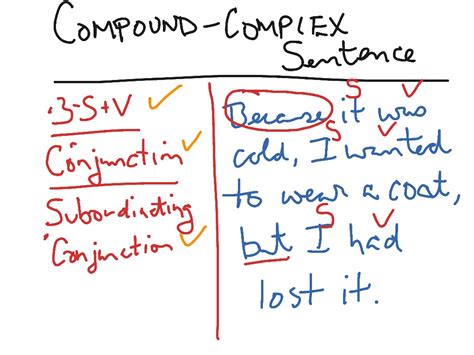 COMPOUND-COMPLEX
Sentence
·3-S+V ✓
Conjunction ✓
Subordinating
Conjunction ✓
S V
Because it was
S V
cold, I wanted
to wear a coat,
S V
but I had
lost it.